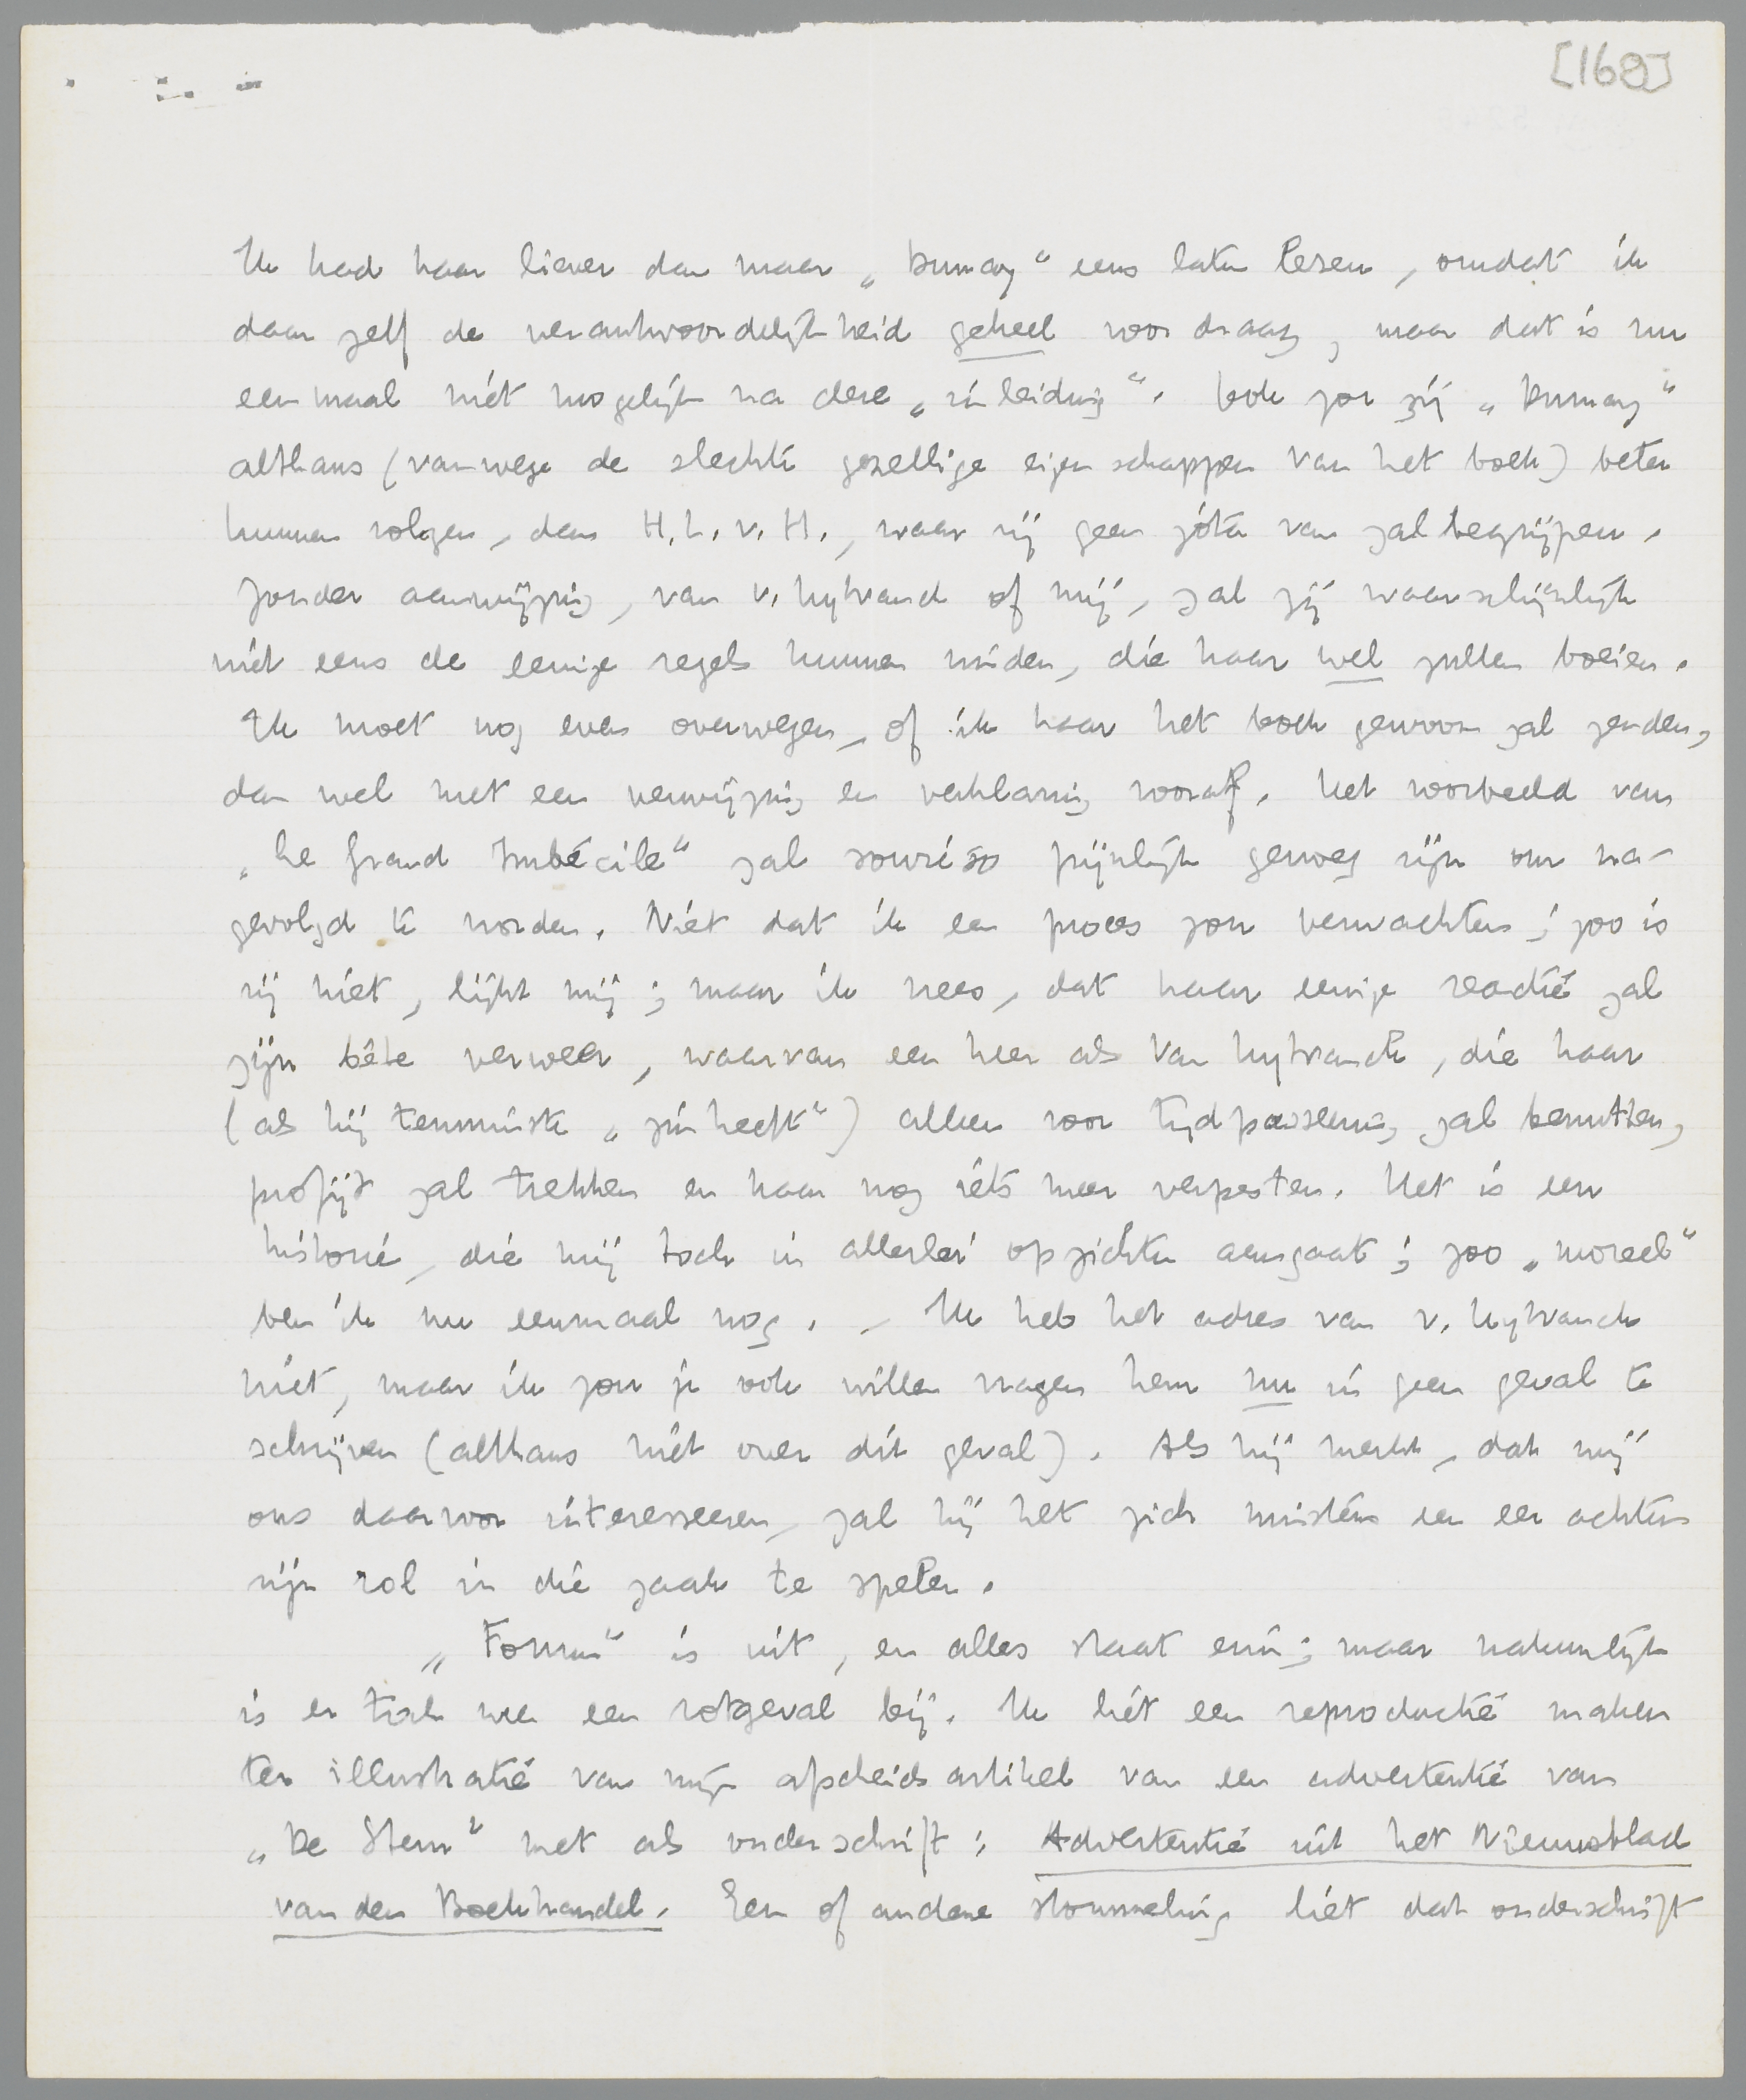 [169]
Ik had haar liever dan maar „Dumay” eens laten lezen, omdat ik
daar zelf de verantwoordelijkheid geheel voor draag, maar dat is nu
eenmaal niet mogelijk na deze „inleiding”. Ook zou zij „Dumay”
althans (vanwege de slechte gezellige eigenschappen van het boek) beter
kunnen volgen, dan H.L.v.H., waar zij geen jóta van zal begrijpen.
Zonder aanwijzing, van v. Uytvanck of mij, zal zij waarschijnlijk
niet eens de eenige regels kunnen vinden, die haar wel zullen boeien.
Ik moet nog even overwegen, of ik haar het boek gewoon zal zenden,
dan wel met een verwijzing en verklaring vooraf. Het voorbeeld van
„Le Grand Imbécile” zal sowieso pijnlijk genoeg zijn om na-
gevolgd te worden. Niet dat ik een proces zou verwachten; zoo is
zij niet, lijkt mij; maar ik vrees, dat haar eenige reactie zal
zijn bête verweer, waarvan een heer als Van Uytvanck, die haar
(als hij tenminste „zin heeft”) alleen voor tijdpasseering zal benutten,
profijt zal trekken en haar nog iets meer verpesten. Het is een
historie, die mij toch in allerlei opzichten aangaat; zoo „moreel”
ben ik nu eenmaal nog. – Ik heb het adres van v. Uytvanck
niet, maar ik zou je ook willen vragen hem nu in geen geval te
schrijven (althans niet over dit geval). Als hij merkt, dat wij
ons daarvoor interesseeren, zal hij het zich minstens een eer achten
zijn rol in die zaak te spelen.
„Forum” is uit, en alles staat erin; maar natuurlijk
is er toch weer een rotgeval bij. Ik liet een reproductie maken
ter illustratie van mijn afscheidsartikel van een advertentie van
„De Stem” met als onderschrift: Advertentie uit het Nieuwsblad
van den Boekhandel. Een of andere stommeling liet dat onderschrift